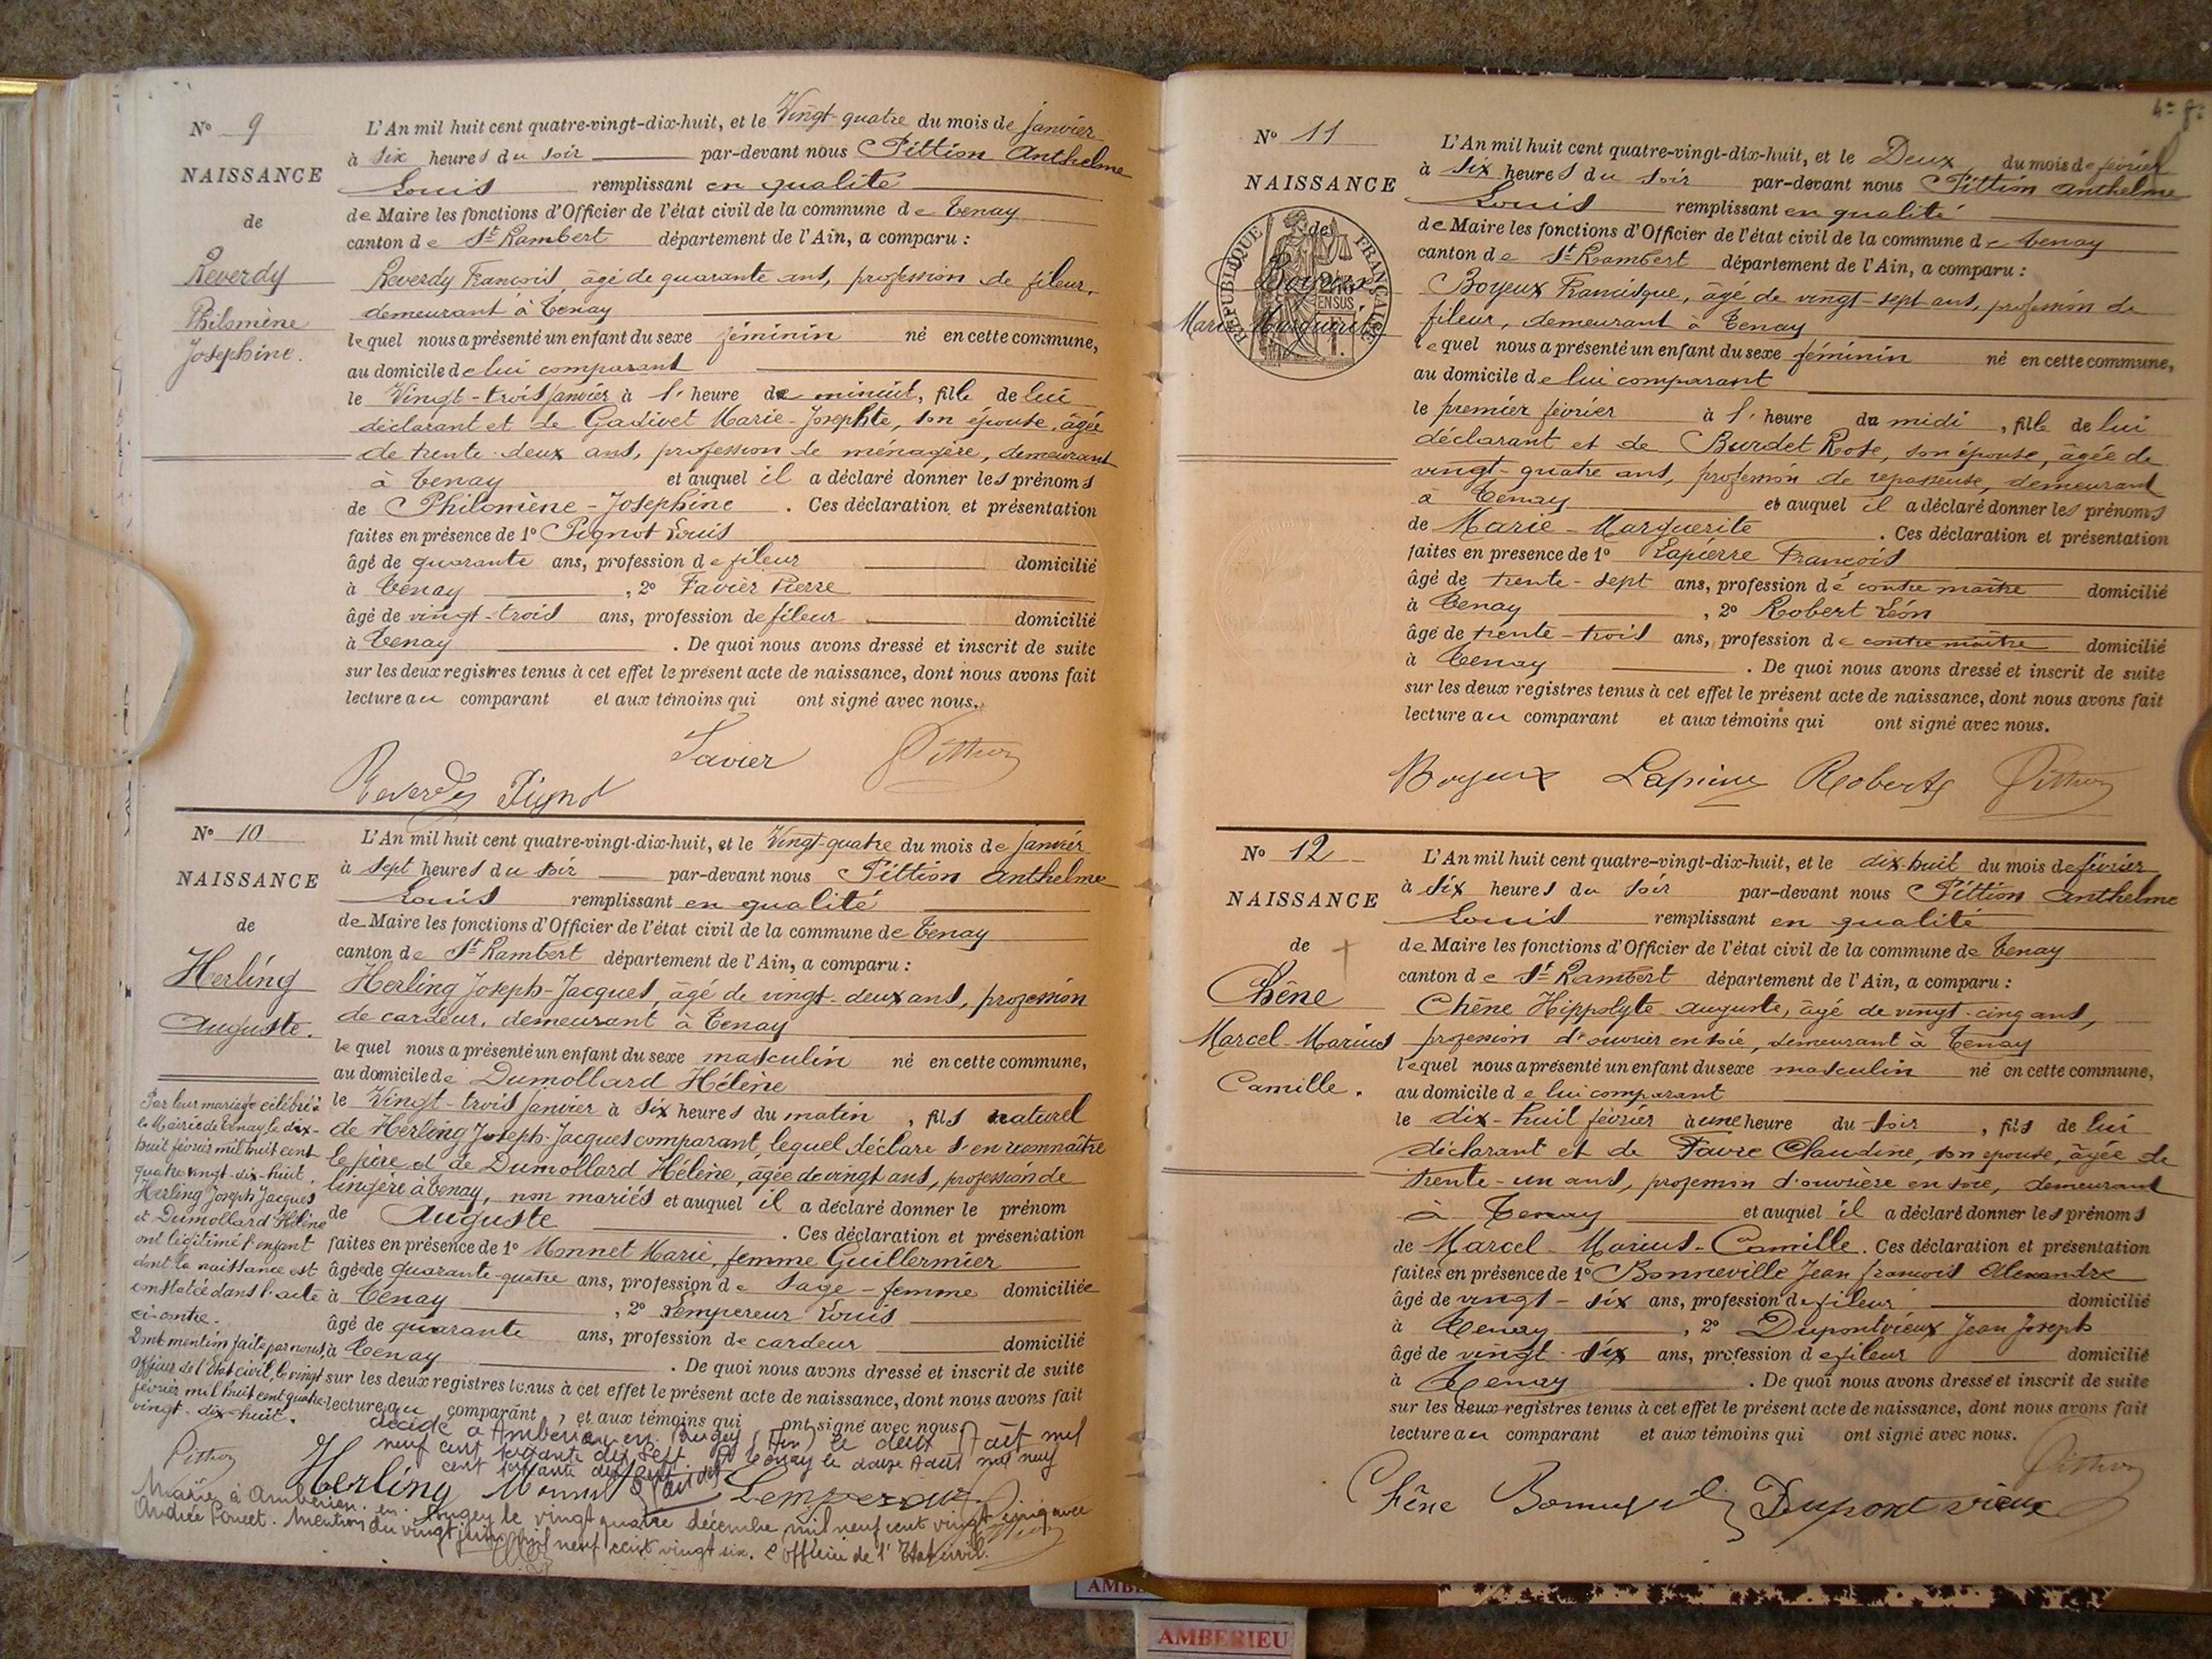 N° 9
NAISSANCE
de
Reverdy
Philomène
Joséphine.
L'An mil huit cent quatre-vingt-dix-huit, et le Vingt-quatre du mois de janvier
à six heures du soir par-devant nous Pittion Anthelme
Louis remplissant en qualité
de Maire les fonctions d'Officier de l'état civil de la commune de Tenay
canton de St Rambert département de l'Ain, a comparu :
Reverdy François, âgé de quarante ans, profession de fileur,
demeurant à Tenay
lequel nous a présenté un enfant du sexe féminin né en cette commune,
au domicile de lui comparant
le Vingt-trois janvier à l' heure de minuit, fille de lui
déclarant et de Gadivet Marie-Josephte, son épouse, âgée
de trente-deux ans, profession de ménagère, demeurant
à Tenay et auquel il a déclaré donner les prénoms
de Philomène-Joséphine . Ces déclaration et présentation
faites en présence de 1° Pignot Louis
âgé de quarante ans, profession de fileur domicilié
à Tenay , 2° Favier Pierre
âgé de vingt-trois ans, profession de fileur domicilié
à Tenay . De quoi nous avons dressé et inscrit de suite
sur les deux registres tenus à cet effet le présent acte de naissance, dont nous avons fait
lecture au comparant et aux témoins qui ont signé avec nous.
Favier Pittion
Reverdy Pignot
N° 10
NAISSANCE
de
Herling
Auguste.
L'An mil huit cent quatre-vingt-dix-huit, et le Vingt-quatre du mois de janvier
à sept heures du soir par-devant nous Pittion Anthelme
Louis remplissant en qualité
de Maire les fonctions d'Officier de l'état civil de la commune de Tenay
canton de St Rambert département de l'Ain, a comparu :
Herling Joseph-Jacques, âgé de vingt-deux ans, profession
de cardeur, demeurant à Tenay
lequel nous a présenté un enfant du sexe masculin né en cette commune,
au domicile de Dumollard Hélène
le Vingt-trois janvier à six heures du matin , fils naturel
de Herling Joseph-Jacques comparant, lequel déclare s'en reconnaître
le père et de Dumollard Hélène, âgée de vingt ans, profession de
lingère à Tenay, non mariés et auquel il a déclaré donner le prénom
de Auguste . Ces déclaration et présentation
faites en présence de 1° Monnet Marie, femme Guillermier
âgée de quarante-quatre ans, profession de sage-femme domiciliée
à Tenay , 2° Lempereur Louis
âgé de quarante ans, profession de cardeur domicilié
à Tenay . De quoi nous avons dressé et inscrit de suite
sur les deux registres tenus à cet effet le présent acte de naissance, dont nous avons fait
lecture au comparant, et aux témoins qui ont signé avec nous.
Par leur mariage célébré à
la Mairie de Tenay le dix-
huit février mil huit cent
quatre-vingt-dix-huit,
Herling Joseph Jacques
et Dumollard Hélène
ont légitimé l'enfant
dont la naissance est
constatée dans l'acte
ci-contre.
Dont mention faite par nous,
Officier de l'État civil, le vingt
février mil huit cent quatre-
vingt-dix-huit.
Pittion
décédé à Ambérieu en Bugey (Ain) le deux Août mil
neuf cent soixante dix sept. A Tenay le douze Août mil neuf
cent soixante dix sept.
Herling Monnet Lempereur
Marié à Ambérieu-en-Bugey le vingt quatre décembre mil neuf cent vingt cinq avec
Andrée Poncet. Mention du vingt juin mil neuf cent vingt six. L'officier de l'Etat civil.
N° 11
NAISSANCE
de
Boyeux
Marie Marguerite
RÉPUBLIQUE FRANÇAISE
2/10
EN SUS
L'An mil huit cent quatre-vingt-dix-huit, et le Deux du mois de février
à six heures du soir par-devant nous Pittion Anthelme
Louis remplissant en qualité
de Maire les fonctions d'Officier de l'état civil de la commune de Tenay
canton de St Rambert département de l'Ain, a comparu :
Boyeux Francisque, âgé de vingt-sept ans, profession de
fileur, demeurant à Tenay
lequel nous a présenté un enfant du sexe féminin né en cette commune,
au domicile de lui comparant
le premier février à l' heure de midi , fille de lui
déclarant et de Burdet Rose, son épouse, âgée de
vingt-quatre ans, profession de repasseuse, demeurant
à Tenay et auquel il a déclaré donner les prénoms
de Marie-Marguerite . Ces déclaration et présentation
faites en présence de 1° Lapierre François
âgé de trente-sept ans, profession de contre maître domicilié
à Tenay , 2° Robert Léon
âgé de trente-trois ans, profession de contre maître domicilié
à Tenay . De quoi nous avons dressé et inscrit de suite
sur les deux registres tenus à cet effet le présent acte de naissance, dont nous avons fait
lecture au comparant et aux témoins qui ont signé avec nous.
Boyeux Lapierre Robert Pittion
N° 12
NAISSANCE
de
Chêne
Marcel-Marius
Camille.
L'An mil huit cent quatre-vingt-dix-huit, et le dix-huit du mois de février
à six heures du soir par-devant nous Pittion Anthelme
Louis remplissant en qualité
de Maire les fonctions d'Officier de l'état civil de la commune de Tenay
canton de St Rambert département de l'Ain, a comparu :
Chêne Hippolyte-Auguste, âgé de vingt-cinq ans,
profession d'ouvrier en soie, demeurant à Tenay
lequel nous a présenté un enfant du sexe masculin né en cette commune,
au domicile de lui comparant
le dix-huit février à une heure du soir , fils de lui
déclarant et de Favre Claudine, son épouse, âgée de
trente-un ans, profession d'ouvrière en soie, demeurant
à Tenay et auquel il a déclaré donner les prénoms
de Marcel-Marius-Camille . Ces déclaration et présentation
faites en présence de 1° Bonneville Jean François Alexandre
âgé de vingt-six ans, profession de fileur domicilié
à Tenay , 2° Dupontvieux Jean Joseph
âgé de vingt-six ans, profession de fileur domicilié
à Tenay . De quoi nous avons dressé et inscrit de suite
sur les deux registres tenus à cet effet le présent acte de naissance, dont nous avons fait
lecture au comparant et aux témoins qui ont signé avec nous.
Pittion
Chêne Bonneville Dupontvieux
AMBERIEU